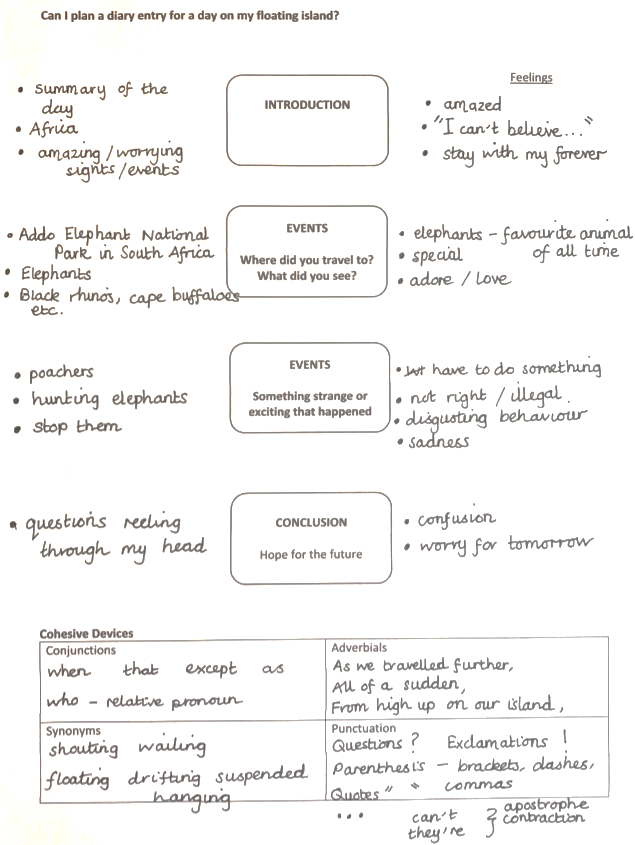 Can I plan a diary entry for a day on my floating island?
• summary of the
day
• Africa
• amazing/worrying
sights/events
INTRODUCTION
Feelings
• amazed
• "I can't believe..."
• stay with my forever
• Addo Elephant National
Park in South Africa
• Elephants
• Black rhino's, cape buffaloes
etc.
EVENTS
Where did you travel to?
What did you see?
• elephants – favourite animal
of all time
• special
• adore / love
• poachers
• hunting elephants
• stop them
EVENTS
Something strange or
exciting that happened
• have to do something
• not right / illegal.
• disgusting behaviour
• sadness
• questions reeling
through my head
CONCLUSION
Hope for the future
• confusion
• worry for tomorrow
Cohesive Devices
Conjunctions
when that except as
who – relative pronoun
Adverbials
As we travelled further,
All of a sudden,
From high up on our island,
Synonyms
shouting wailing
floating drifting suspended
hanging
Punctuation
Questions ? Exclamations !
Parenthesis – brackets, dashes,
commas
Quotes " "
... can't
they're } apostrophe
contraction